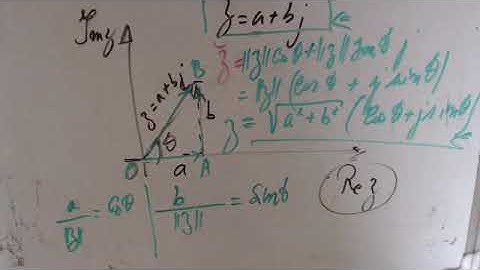 Imz
z = a+bj
z = ||z|| Cos θ + ||z|| sin θ j
= ||z|| (Cos θ + j sin θ)
z = √a²+b² (Cos θ + j sin θ)
z = a+bj
B
b
θ
O
a
A
Re z
a/||z|| = Cos θ | b/||z|| = Sin θ